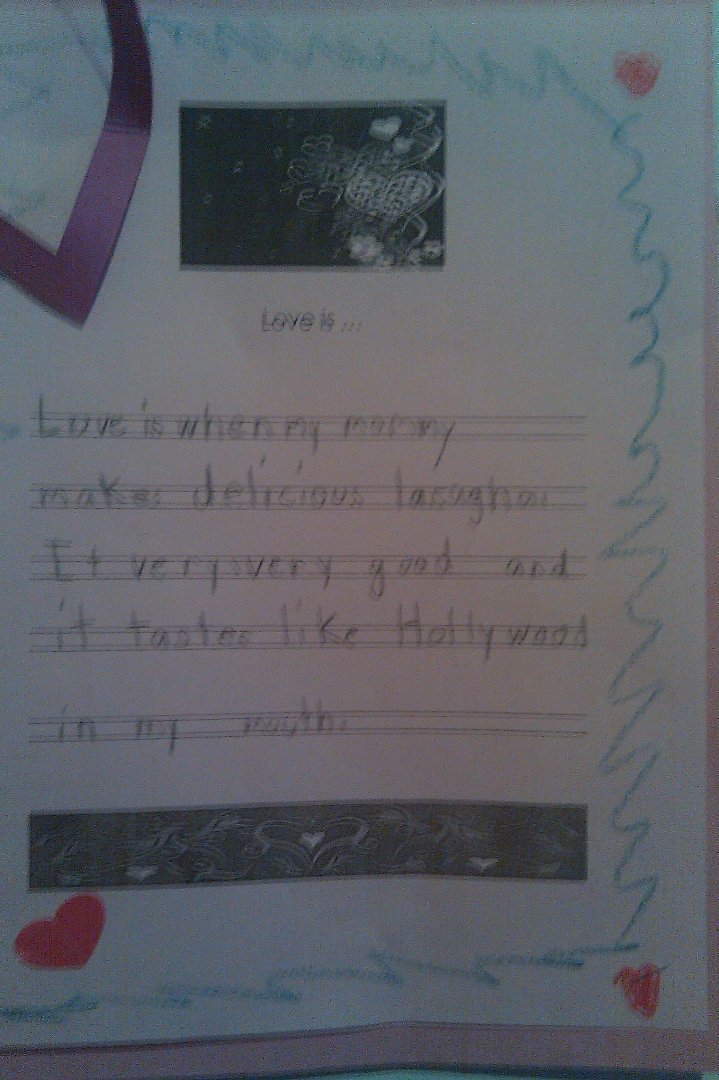 Love is...
Love is when my mommy
makes delicious lasagha.
It very very good and
it tastes like Hollywood
in my mouth.